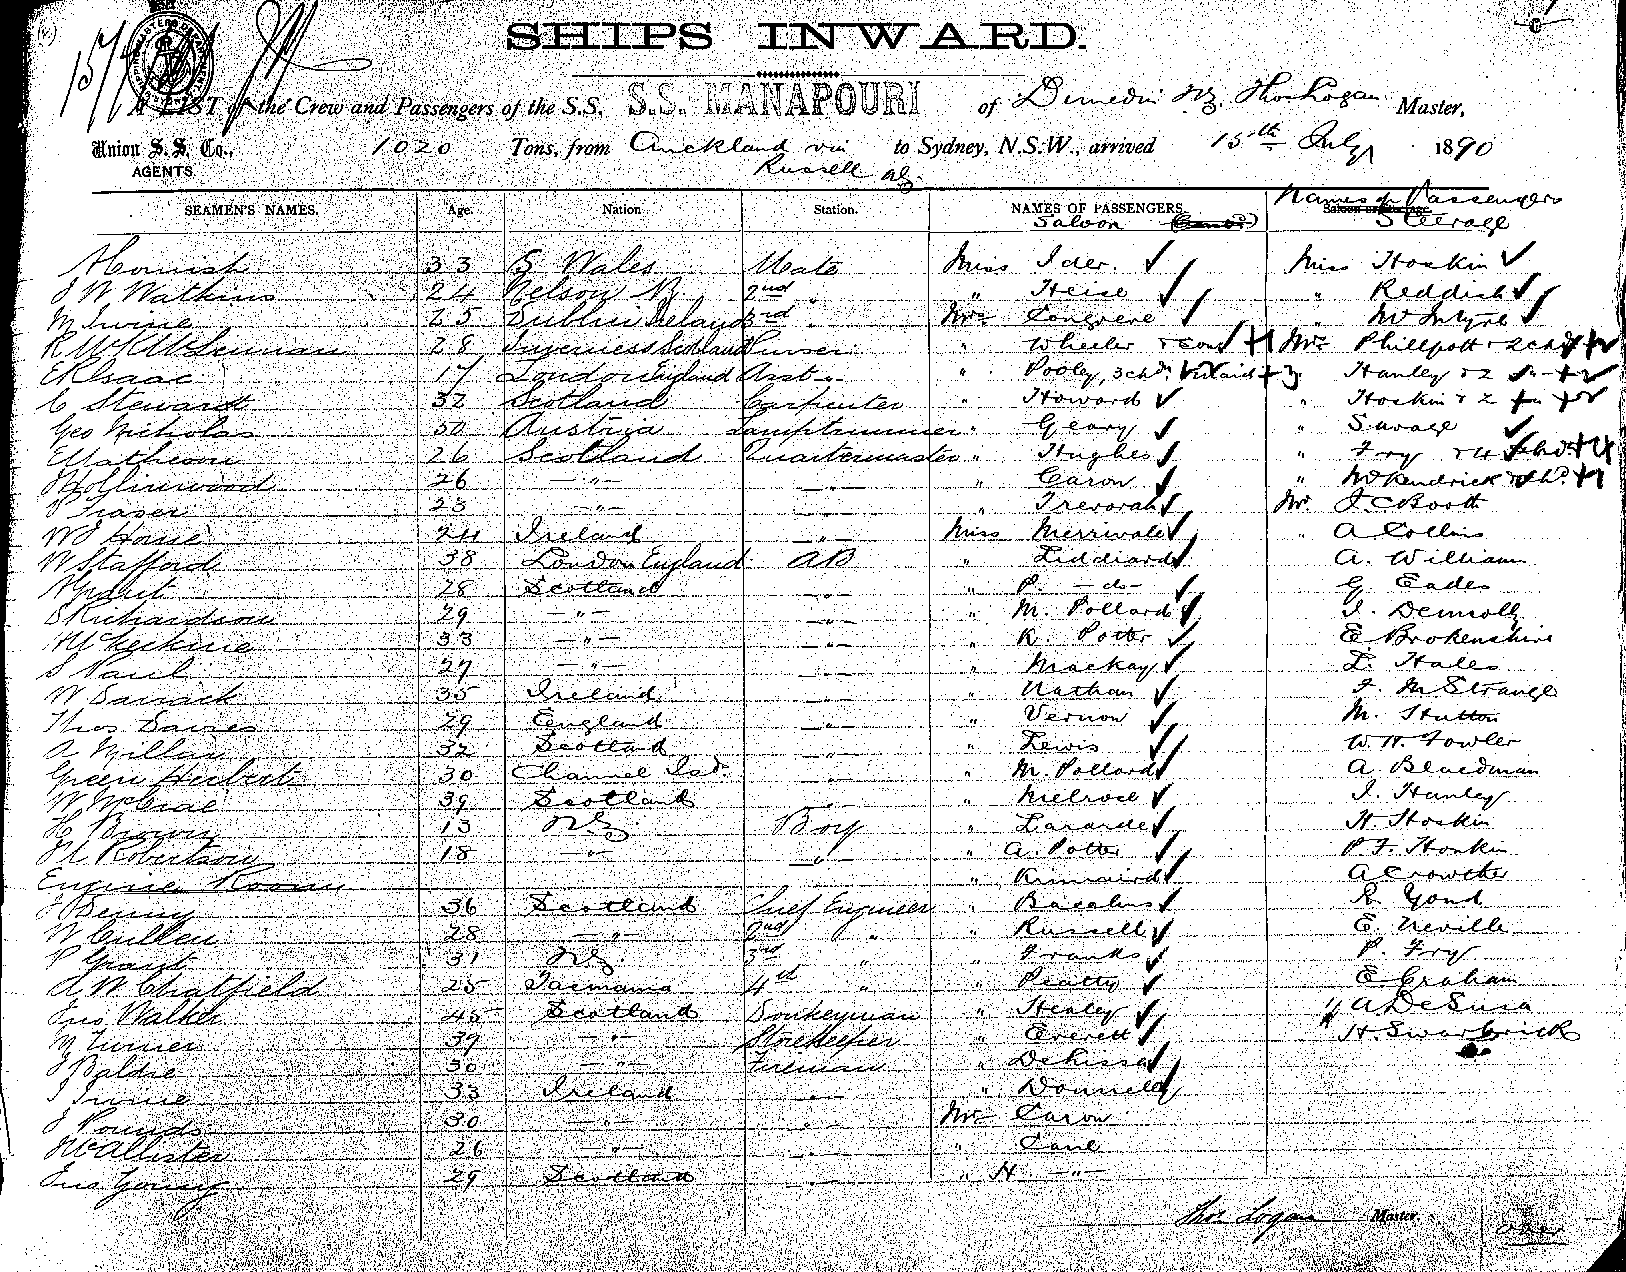 15/7
SHIPS INWARD.
A LIST of the Crew and Passengers of the S.S. S.S. MANAPOURI of Dunedin NZ. Thos Logan Master,
Union S.S. Co., 1020 Tons, from Auckland via to Sydney, N.S.W., arrived 15th July 1890
AGENTS. Russell NZ.
SEAMEN'S NAMES. Age. Nation. Station. NAMES OF PASSENGERS. Names of Passengers
Saloon Steerage
A Cornish 33 S Wales Mate Miss Ider. Miss Hoskin
J W Watkins 24 Nelson 2nd " " Heise " Reddish
M Irvine 25 Dublin Ireland 3rd " Mrs Congreve " McIntyre
28 Inverness Scotland Purser " Wheeler & son +1 Mrs Phillpott & 2 chd +2
E K Isaac 17 London England Asst " " Pooley, 3 chd. & maid + 3 " Hanley & 2 " +2
C Stewart 32 Scotland Carpenter " Howard " Hoskin & 2 " +2
Geo Nicholas 50 Austria Lamptrimmer " Geary " Savage
E Matheson 26 Scotland Quartermaster " Hughes " Fry & 4 chd +4
Hollinwood 26 — " — — " — " Caron " McKendrick & ch. +1
Fraser 23 — " — — " — " Trevorah Mr J C Booth
W J Horie 24 Ireland — " — Miss Merrivale " A Collins
W Stafford 38 London England AB " Liddiard A. William
A Grant 28 Scotland — " — " P. — do — G Eades
Richardson 29 — " — — " — " M. Pollard J.
33 — " — — " — " K. Potter E Brokenshire
S Paul 27 — " — — " — " Mackay Hales
W 35 Ireland — " — " Nathan F. M Strange
Thos Davies 29 England — " — " Vernon M. Hutton
A Millar 32 Scotland — " — " Lewis W. H. Fowler
Green Herbert 30 Channel Isd. — " — " M. Pollard A
W McCrae 39 Scotland — " — " Melrose J. Hanley
H Brown 13 NZ Boy " H Hoskin
Robertson 18 — " — — " — " A. Potter P F. Hoskin
Engine Room " Kinnaird A Crowther
J Benny 36 Scotland Chief Engineer " R. Yond
W Cullen 28 — " — 2nd " " Russell E. Neville
P Grant 31 NZ. 3rd " " Franks P. Fry
A W Chatfield 25 Tasmania 4th " " Peatty E Graham
Jas Walker 45 Scotland Donkeyman " Healey A DeSusa
M Turner 39 — " — Storekeeper " Everett H. Swarbrick
J Baldie 30 — " — Fireman " DeLissa
J Irvine 33 Ireland — " — " Donnelly
J Pounds 30 — " — — " — Mr Caron
McAllister 26 — " — — " — " Cane
Jas Young 29 Scotland — " — " H — " —
Thos Logan Master.